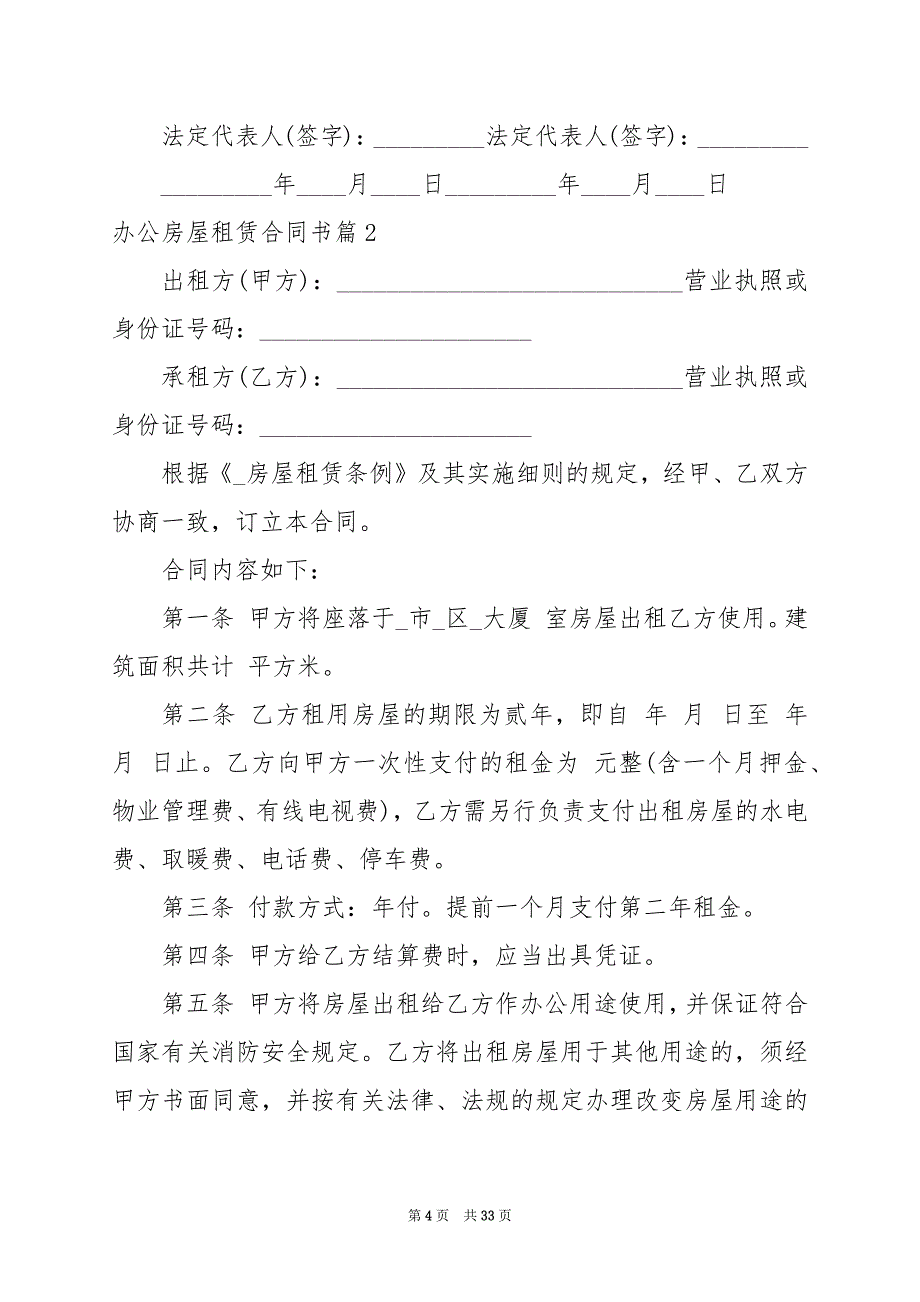 法定代表人(签字)：_________法定代表人(签字)：_________
_________年____月____日_________年____月____日
办公房屋租赁合同书篇2
出租方(甲方)：____________________________营业执照或
身份证号码：______________________
承租方(乙方)：____________________________营业执照或
身份证号码：______________________
根据《_房屋租赁条例》及其实施细则的规定，经甲、乙双方
协商一致，订立本合同。
合同内容如下：
第一条 甲方将座落于_市_区_大厦 室房屋出租乙方使用。建
筑面积共计 平方米。
第二条 乙方租用房屋的期限为贰年，即自 年 月 日至 年
月 日止。乙方向甲方一次性支付的租金为 元整(含一个月押金、
物业管理费、有线电视费)，乙方需另行负责支付出租房屋的水电
费、取暖费、电话费、停车费。
第三条 付款方式：年付。提前一个月支付第二年租金。
第四条 甲方给乙方结算费时，应当出具凭证。
第五条 甲方将房屋出租给乙方作办公用途使用，并保证符合
国家有关消防安全规定。乙方将出租房屋用于其他用途的，须经
甲方书面同意，并按有关法律、法规的规定办理改变房屋用途的
第 4 页 共 33 页